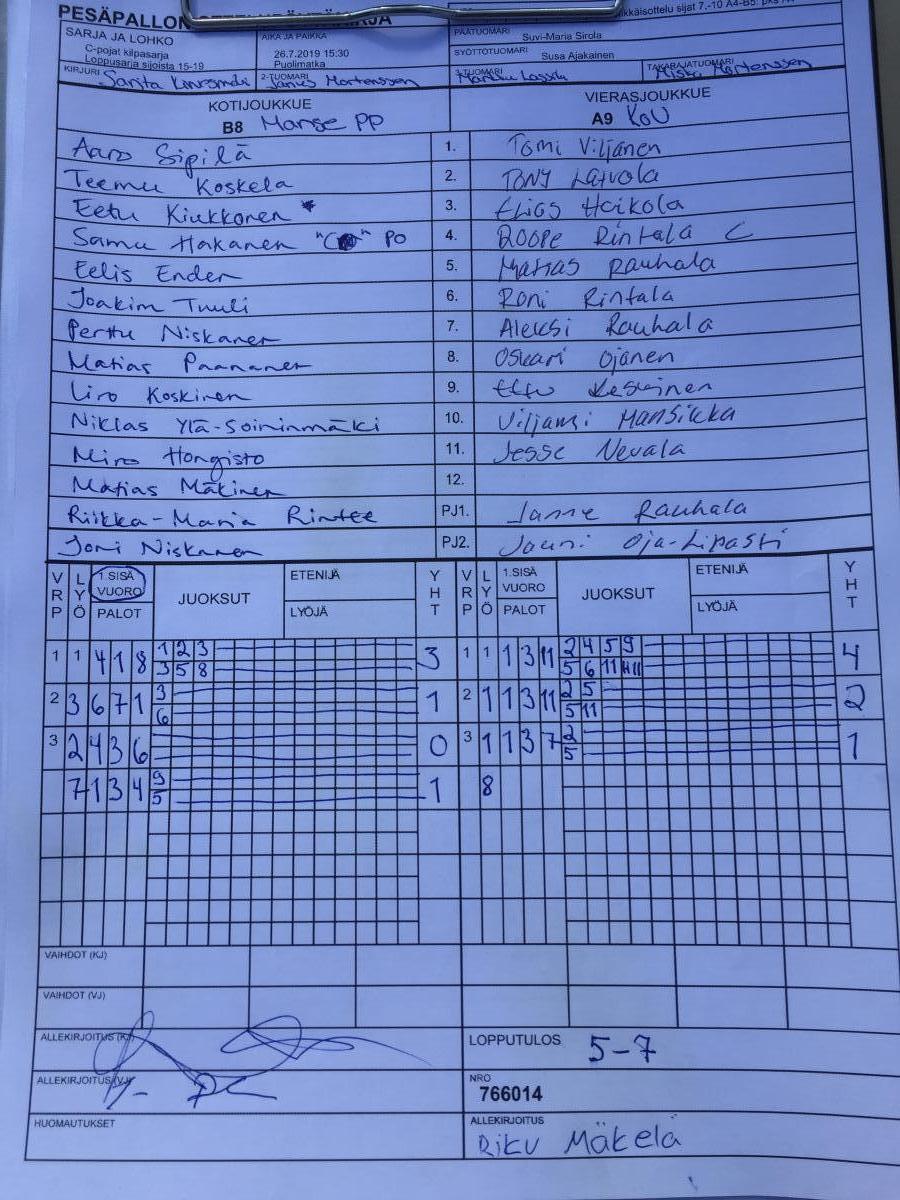 PESÄPALLON
SARJA JA LOHKO
C-pojat kilpasarja
Loppusarja sijoista 15-19
AIKA JA PAIKKA
26.7.2019 15:30
Puolimatka
PÄÄTUOMARI
Suvi-Maria Sirola
SYÖTTÖTUOMARI
Susa Ajakainen
KIRJURI Sarita
2-TUOMARI Mortenssen
3-TUOMARI
TAKARAJATUOMARI Miska Mortenssen
KOTIJOUKKUE
B8 Manse PP
VIERASJOUKKUE
A9 KoU
Aaro Sipilä 1. Tomi Viljanen
Teemu Koskela 2. Tony Latvola
Eetu Kiukkonen * 3. Elias Haikola
Samu Hakanen PO 4. Roope Rintala C
Eelis Ender 5. Matias Rauhala
Joakim Tuuli 6. Roni Rintala
Perttu Niskanen 7. Aleksi Rauhala
Matias Paananen 8. Oskari Ojanen
Liro Koskinen 9. Eetu Keskinen
Niklas Ylä-Soininmäki 10. Viljami Mansikka
Miro Hongisto 11. Jesse Nevala
Matias Mäkinen 12.
Riikka-Maria Rintee PJ1. Janne Rauhala
Joni Niskanen PJ2. Jouni Oja-Lipasti
VRP LYÖ 1.SISÄ VUORO PALOT JUOKSUT ETENIJÄ LYÖJÄ YHT VRP LYÖ 1.SISÄ VUORO PALOT JUOKSUT ETENIJÄ LYÖJÄ YHT
1 1 4 1 8 1 2 3 3 1 1 1 3 11 2 4 5 9 4
3 5 8 5 6 11 11
2 3 6 7 1 3 1 2 1 1 3 11 2 5 2
6 5 11
3 2 4 3 6 0 3 1 1 3 7 2 1
5
7 1 3 4 9 1 8
5
VAIHDOT (KJ)
VAIHDOT (VJ)
ALLEKIRJOITUS (KJ)
LOPPUTULOS 5-7
ALLEKIRJOITUS (VJ)
NRO
766014
HUOMAUTUKSET
ALLEKIRJOITUS
Riku Mäkelä